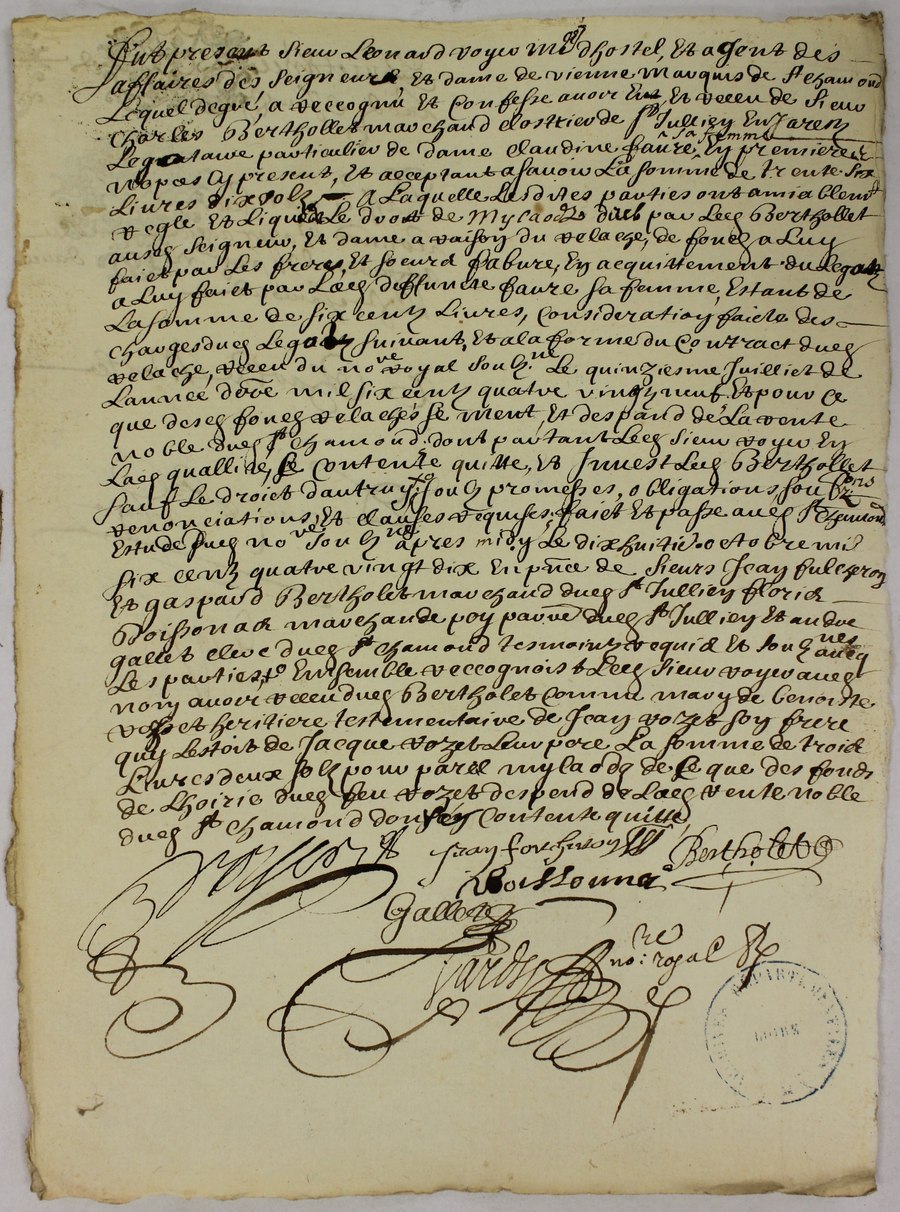 Fut present Sieur Leonard voyer md dhostel, Et agent des
affaires des Seigneurs Et dame de vienne Marquis de St chamond
Lequel de gré, a reccognu Et Confesse avoir Eut, Et receu de Sieur
Charles Berthollet marchand clostrier de St Jullien En Jarestz
Legataire particulier de dame claudine faure sa femme En premieres
nopces Cy present, Et acceptant a scavoir La somme de trente Six
Livres dix solz A Laquelle Lesdites parties ont amiablemt
regle Et Liquidé Le droit de Mylaodz dub par Led Berthollet
ausd Seigneur, Et dame a raison du relache, de fondz a Luy
faict par Les freres, Et soeurs fabure, En acquittement du Legatz
a Luy faict par Lad deffuncte faure sa femme, Estant de
La somme de six centz Livres, Consideration faicte des
charges dud Legatz suivant, Et a la forme du Contract dud
relache, receu du nore royal soubzne Le quinziesme Juillet de
Lannée dre mil six centz quatre vingtz neuf Et pour ce
que desd fondz relachés se ment, Et despand de La rente
noble dud St chamond. dont partant Led Sieur voyer En
Lad quallité, se Contente quitte, Et Jnvest Led Berthollet
sauf Le droict dautruy, soubz promesses, obligations soubzons
renonciations, Et clauses requises, faict Et passé aud St Chamond
Estude dud nore soubzne apres midy Le dixhuitie. octobre mil
six centz quatre vingt dix En pnce de Sieurs Jean fulcheron
Et gaspard Bertholet marchand dud St Jullien floris
Boissonas marchand dud St Jullien Et andre
gallet eleve dud St chamond tesmoins requis Et soubznes avecq
Les parties, Ensemble reccognoist Led Sieur voyer aud
nom avoir receu dud Bertholet Comme mary de benoiste
vozet heritiere testementaire de Jean vozet son frere
quy Lestoit de Jacque vozet Leur pere La somme de trois
Livres deux solz pour pareil mylaodz de se que des fonds
de Lhoirie dud feu vozet despend de Lad rente noble
dud St Chamond dont sen Contente quitte
Voyer Jean forcheron Bertholet
Boissonnas
Gallet
Jardy nore royal
ARCHIVES DÉPARTEMENTALES
LOIRE